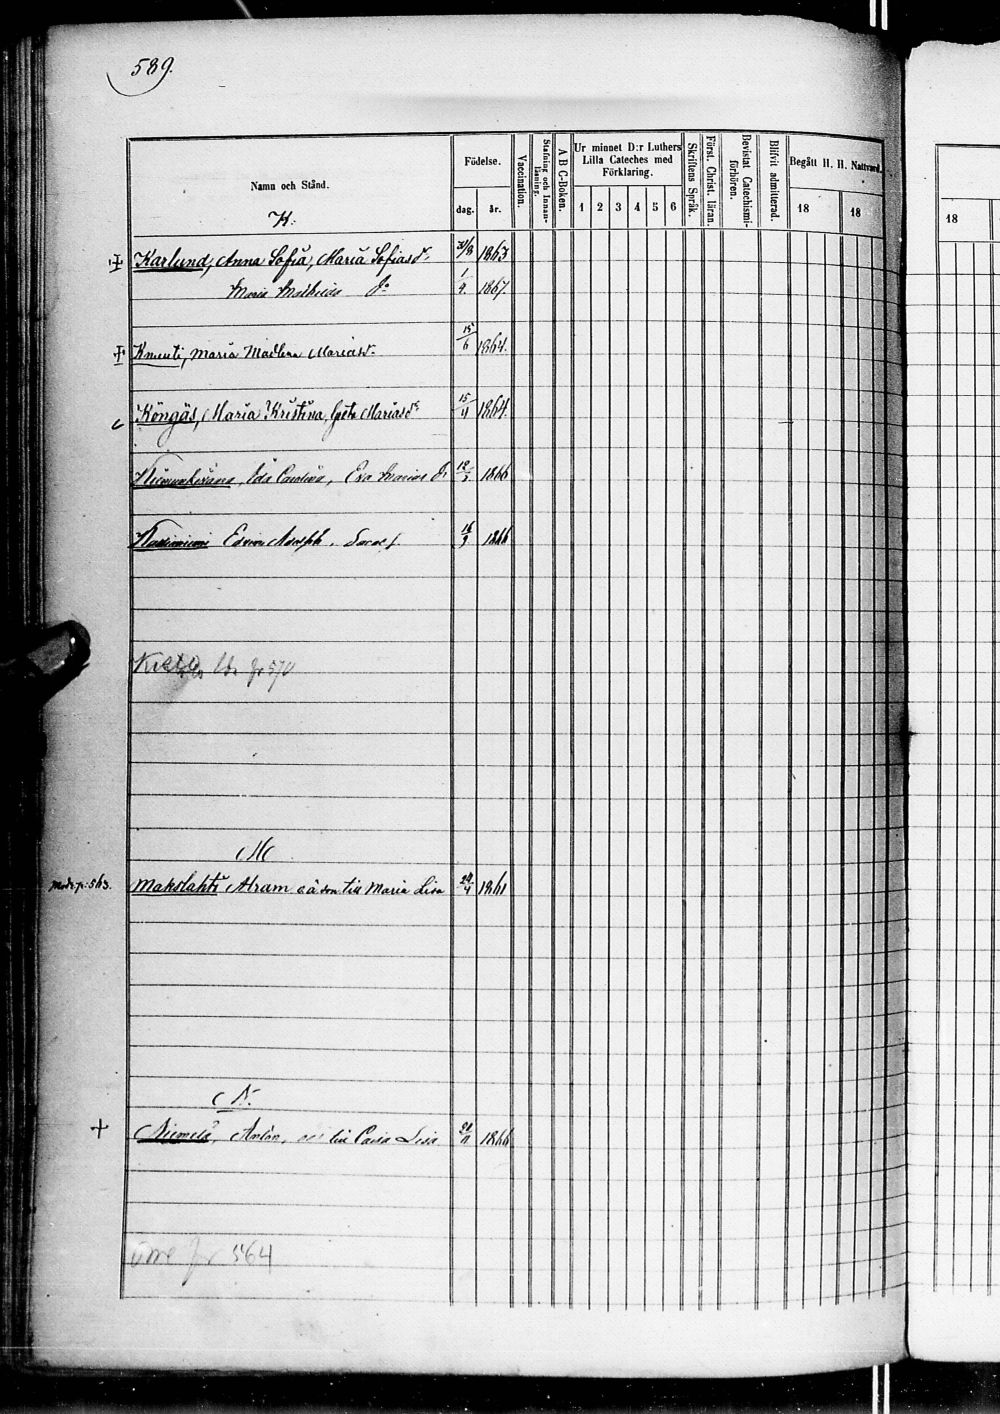 589.
Namn och Stånd.
Födelse.
dag.
år.
Vaccination.
Stafning och Innanläsning.
A B C-Boken.
Ur minnet D:r Luthers Lilla Cateches med Förklaring.
1 2 3 4 5 6
Skriftens Språk.
Först. Christ. läran.
Bevistat Catechismi-förhören.
Blifvit admitterad.
Begått H. H. Nattvard.
18
18
18
K.
Karlund, Anna Sofia, Maria Sofiasdr 1863
Maria Mathilda 1/4. 1867.
Knuuti, Maria Madlena Mariasdr 15/6 1864.
Köngäs, Maria Kristina, Greta Mariasdr 15/4 1864.
Ida Carolina, Eva Marias 12/3 1866
Edvin Adolph, 16/9 1866
570
M
563. Makslahti Abram o ä son till Maria Lisa 1861
N.
+ Niemelä, Anton, till Caisa Lisa 1866
564